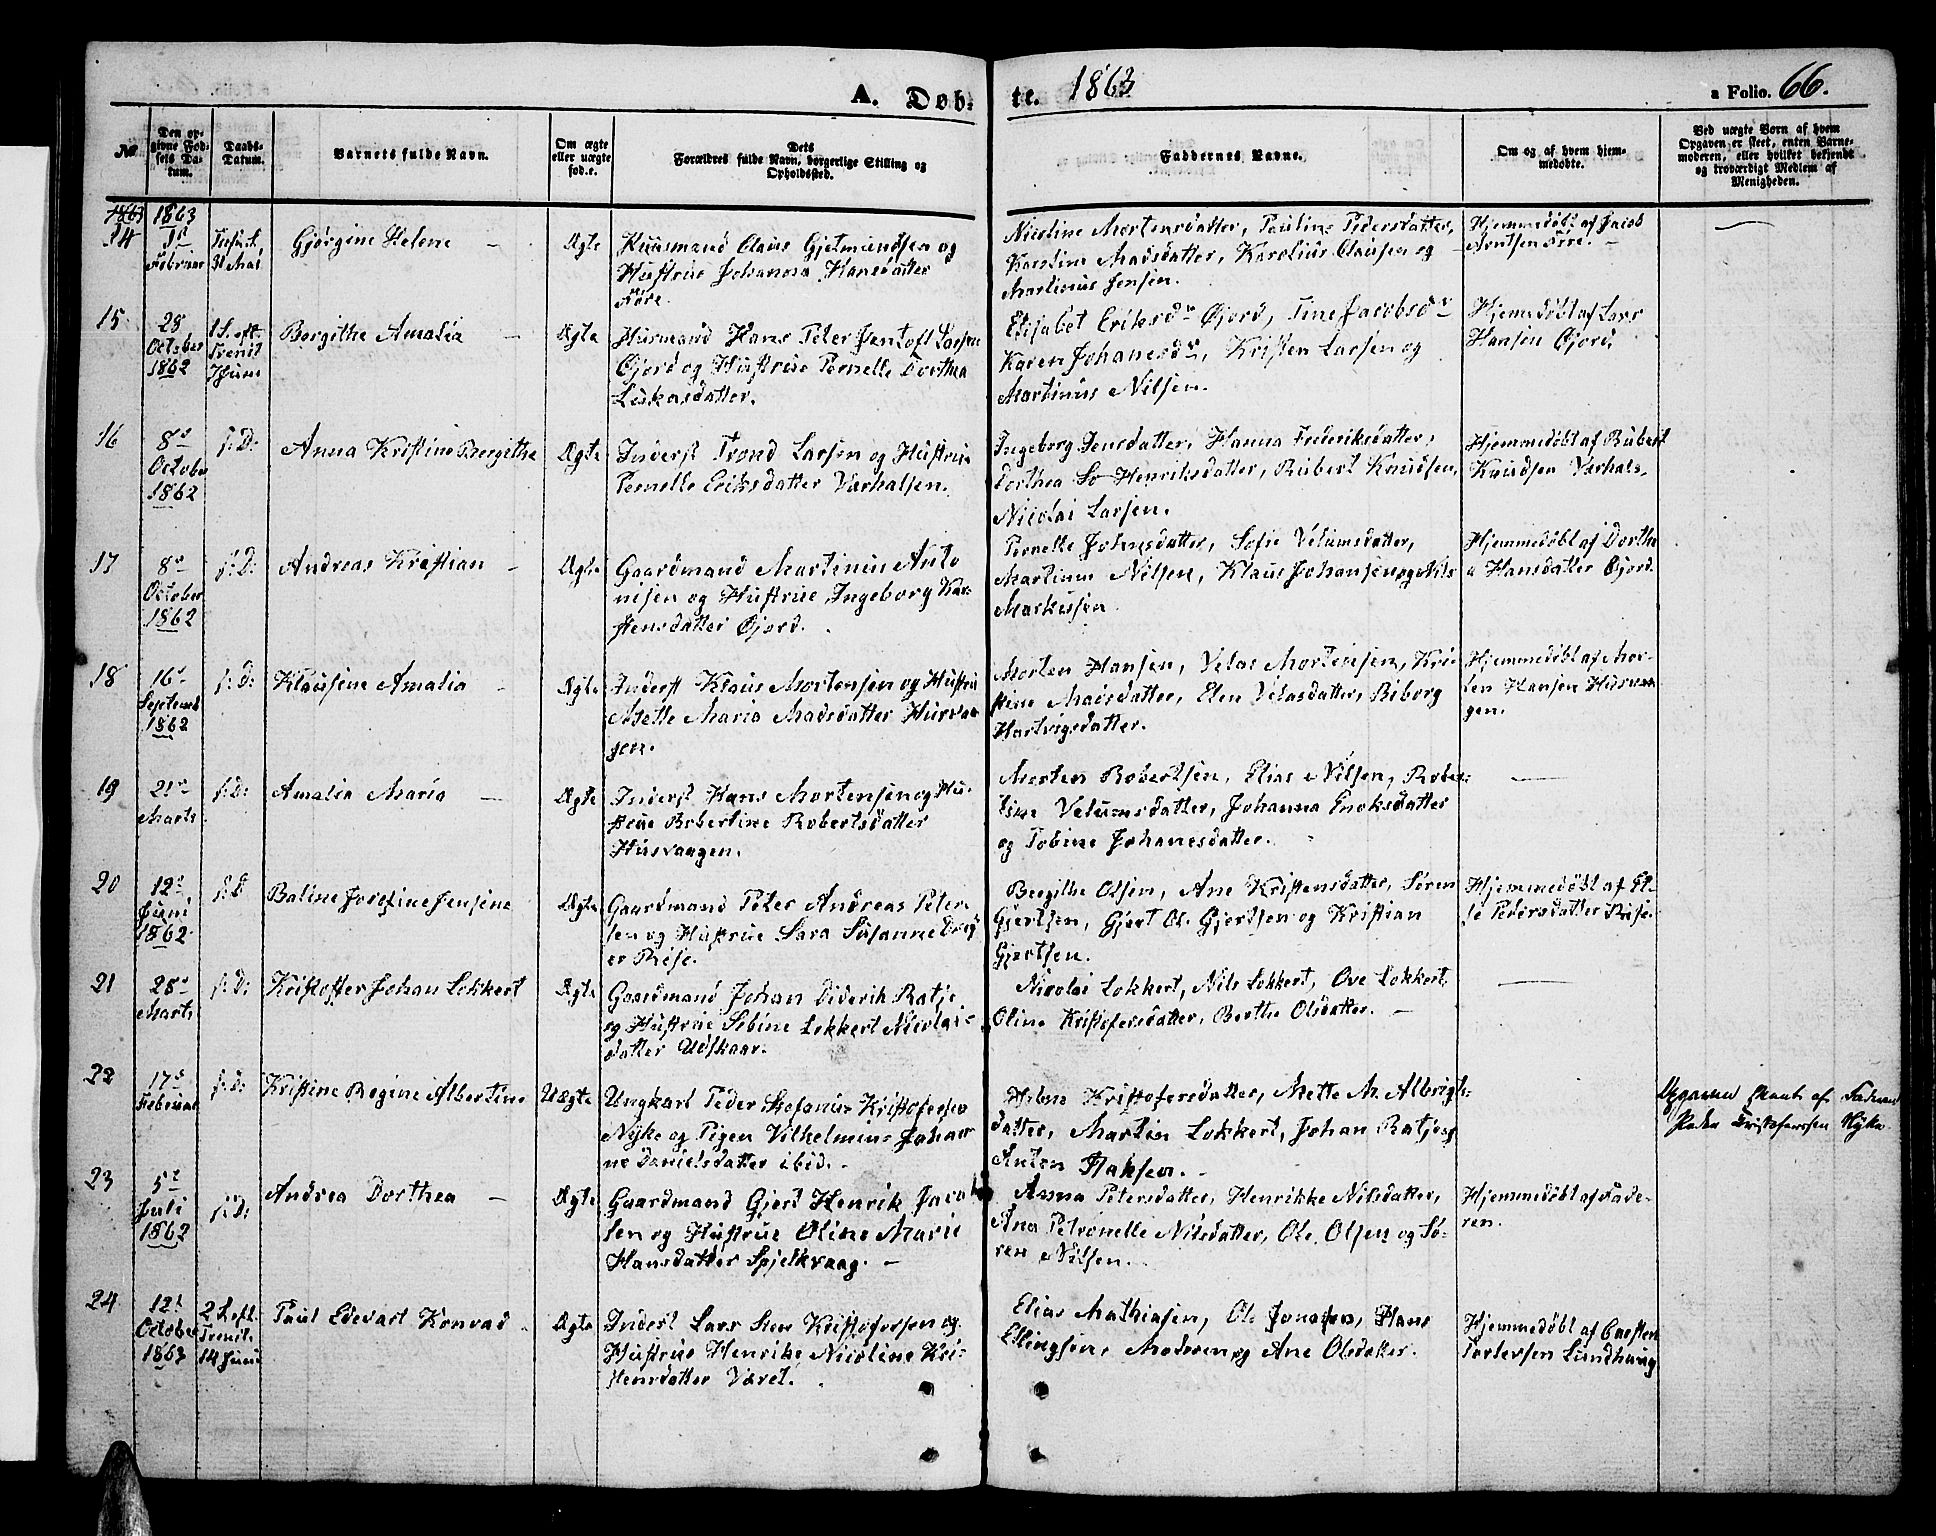 A. Døb-
te. 1863
a Folio. 66.
No
Den opgivne Fødsels Datum.
Daabs-Datum.
Barnets fulde Navn.
Om ægte eller uægte fød.e.
Dets Forældres fulde Navn, borgerlige Stilling og Opholdssted.
Faddernes Navne.
Om og af hvem hjemmedøbte.
Ved uægte Børn af hvem Opgaven er skeet, enten Barnemoderen, eller hvilket bekjendt og troværdigt Medlem af Menigheden.
1863 1863
14 1st Februar
31 Mai
Gjørgine Helene -
Ægte
Huusmand Claus Gjetmundsen og
Hustrue Johanna Hansdatter
Føre.
Nicoline Mortensdatter, Pauline Pedersdatter,
Karoline Madsdatter, Karolius Clausen og
Martinus Jensen.
Hjemmedøbt af Jacob
Arntsen Føre. -
15
28 October 1862
1 S. eft. Trenit 7 Juni
Bergithe Amalia -
Ægte
Husmand Hans Peter Jentoft Larsen
Øjord og Hustrue Pernelle Dorthea
Lukasdatter.
Elisabet Eriksdr Øjord, Tine Jacobsdr
Karen Johanesdr, Kristen Larsen og
Martinus Nilsen.
Hjemmedøbt af Lars
Hansen Øjord.
16
8de October 1862
s: D:
Anna Kristine Bergithe
Ægte
Inderst Trond Larsen og Hustrue
Pernelle Eriksdatter Varhalsen.
Ingeborg Jensdatter, Hanna Frederiksdatter,
Dorthea So Henriksdatter, Rubert Knudsen,
Nicolai Larsen.
Hjemmedøbt af Rubert
Knudsen Varhals-
17
8de October 1862
s: D:
Andreas Kristian -
Ægte
Gaardmand Martinus Anto
nisen og Hustrue Ingeborg Kar-
stensdatter Øjord.
Pernelle Johansdatter, Sofie Velumsdatter,
Martinus Nilsen, Klaus Johansen og Nils
Markussen.
Hjemmedøbt af Dorthe
a Hansdatter Øjord.
18
16de Septemb 1862
s: D:
Klausine Amalia -
Ægte
Inderst Klaus Mortensen og Hustrue
Mette Maria Madsdatter Husvaa-
gen.
Morten Hansen, Velas Mortensen, Kri-
stine Madsdatter, Elen Velasdatter, Riborg
Hartvigsdatter.
Hjemmedøbt af Mor-
ten Hansen Husvaa
gen.
19
21de Marts.
s: D:
Amalia Maria -
Ægte
Inderst Hans Mortensen og Hu-
strue Robertine Robertsdatter
Husvaagen.
Morten Robertsen, Elias Nilsen, Rober-
tine Velumsdatter, Johanna Enoksdatter
og Tobine Johanesdatter.
20
12te Juni 1862
s: D
Baline Josefine Jensine
Ægte
Gaardmand Peter Andreas Peter-
sen og Hustrue Sara Susanne Drey
er Rise.
Bergithe Olsen, Ane Kristensdatter, Søren
Gjertsen, Gjert Ol. Gjertsen og Kristian
Gjertsen.
Hjemmedøbt af El-
se Pedersdatter Rise.
21
28de Marts
s: D:
Kristoffer Johan Lokkert
Ægte
Gaardmand Johan Diderih Ratje
og Hustrue Sebine Lokkert Nicolai-
datter Udskaar.
Nicolai Lokkert, Nils Lokkert, Ove Lokkert
Oline Kristofersdatter, Berthe Olsdatter. -
22
17de Februar
s: D:
Kristine Regine Albertine
Uægte
Ungkarl Peder Stefanus Kristofersen
Nyke og Pigen Vilhelmine Johan
ne Danielsdatter ibid. -
Helene Kristofersdatter, Mette M. Albrigts-
datter, Martin Lokkert, Johan Ratje og
Anton Hansen. -
Opgaven skeet af Faderen
Peder Kristofersen Nyke.
23
5te Juli 1862
s: D:
Andrea Dorthea -
Ægte
Gaardmand Gjert Henrik Jacob
sen og Hustrue Oline Marie
Hansdatter Spjelkvaag. -
Anna Petersdatter, Henrikke Nilsdatter,
Ana Petronelle Nilsdatter, Ole Olsen og Sø-
ren Nilsen.
Hjemmedøbt af Fade-
ren.
24
12te October 1863
2 S. eft. Trenit. 14 Juni
Paul Edevart Konrad
Ægte
Inderst Lars Sten Kristofersen og
Hustrue Henrike Nicoline Kri-
stensdatter Været.
Elias Mathiasen, Ole Jonassen, Hans
Ellingsen, Moderen og Ane Olsdatter.
Hjemmedøbt af Carsten
Torlevsen Lundhaug